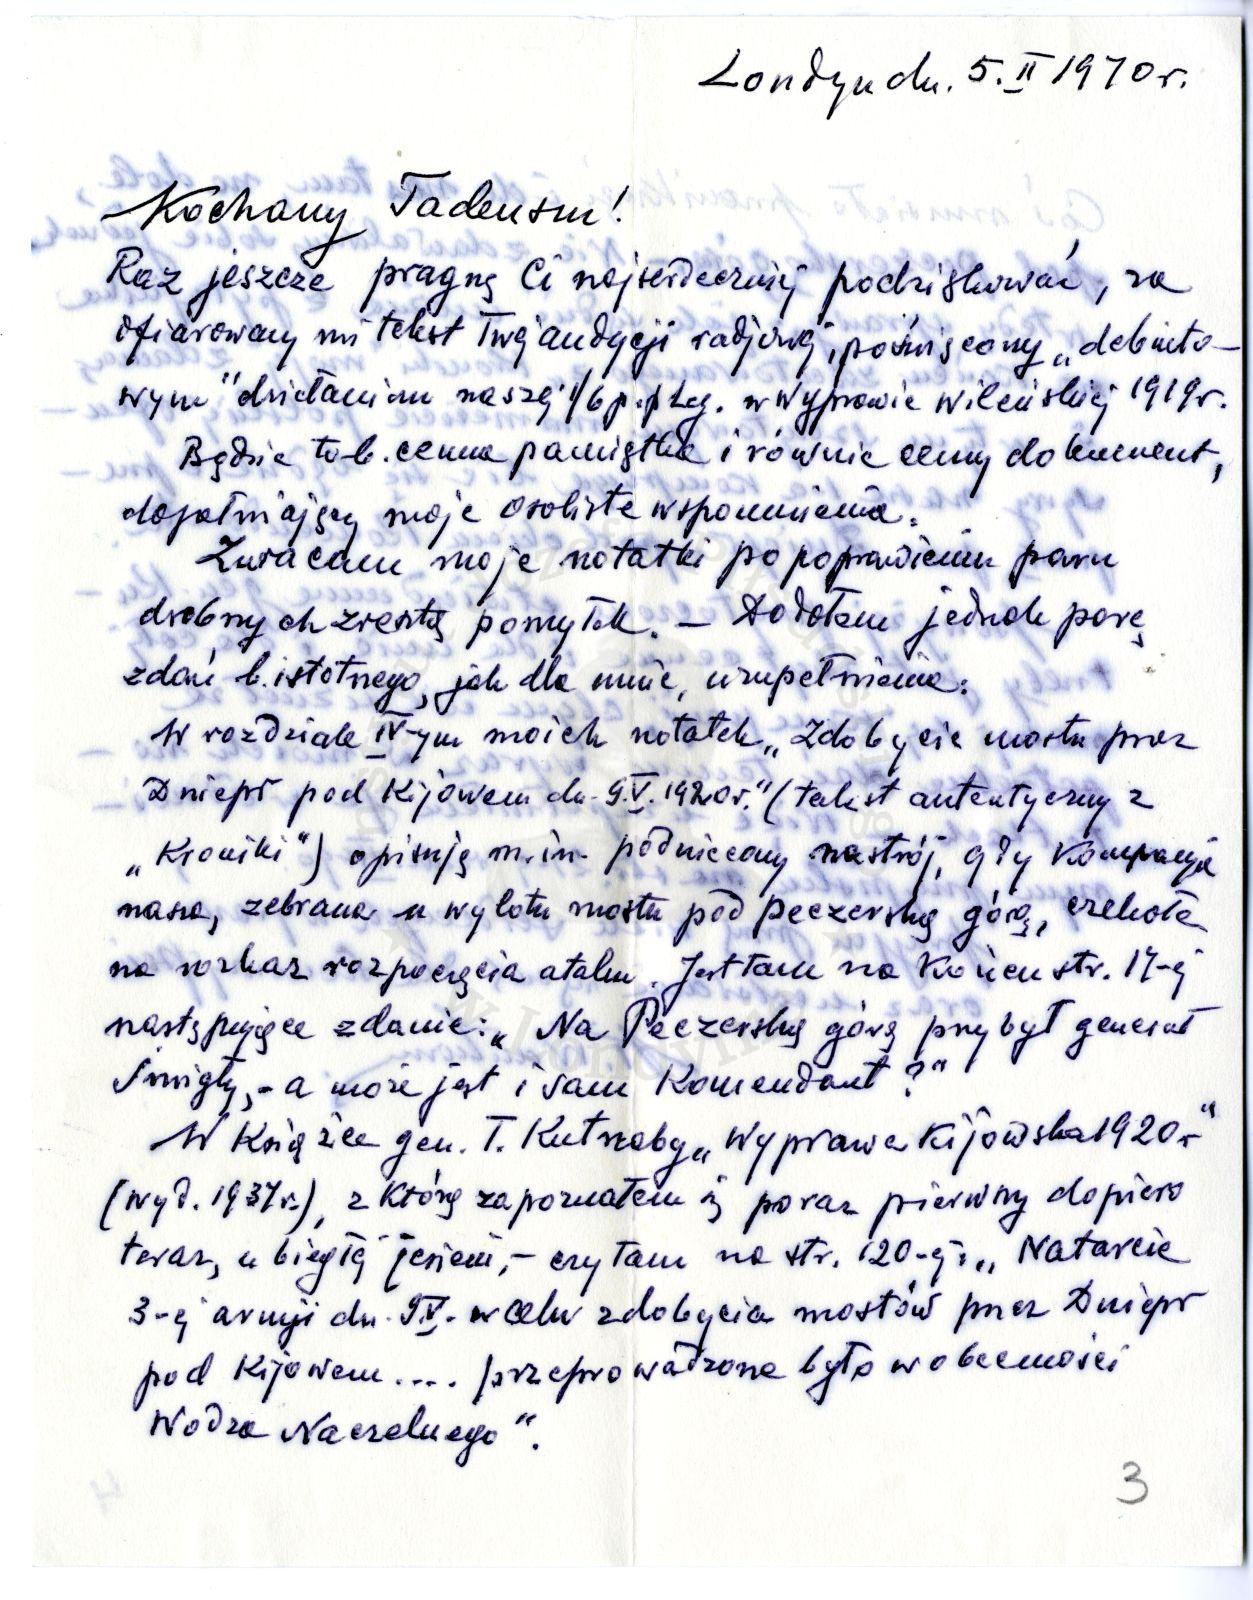 Londyn dn. 5.II 1970 r.
Kochany Tadeuszu!
Raz jeszcze pragnę Ci najserdeczniej podziękować, za
ofiarowany mi tekst Twej audycji radjowej, poświęcony „debiuto-
wym” działaniom naszej 1/6 p.p. Leg. w Wyprawie Wileńskiej 1919 r.
Będzie to b. cenna pamiątka i równie cenny dokument,
dopełniający moje osobiste wspomnienia.
Zwracam moje notatki po poprawieniu paru
drobnych zresztą pomyłek. – Dodałem jednak parę
zdań b. istotnego, jak dla mnie, uzupełnienia:
W rozdziale IV-ym moich notatek „Zdobycie mostu przez
Dniepr pod Kijowem dn. 9.V.1920 r.” (tekst autentyczny z
„Kroniki”) opisuję m.in. podniecony nastrój, gdy Kompanja
nasza, zebrana u wylotu mostu pod Peczerską górą, czekała
na rozkaz rozpoczęcia ataku. Jest tam na końcu str. 17-ej
następujące zdanie: „Na Peczerską górę przybył generał
Śmigły, – a może jest i sam Komendant?”
W Książce gen. T. Kutrzeby „Wyprawa Kijowska 1920 r”
(wyd. 1937 r.), z którą zapoznałem się poraz pierwszy dopiero
teraz, w biegłej jesieni, – czytam na str. 120-ej: „Natarcie
3-ej armji dn. 9.V. w celu zdobycia mostów przez Dniepr
pod Kijowem.... przeprowadzone było w obecności
Wodza Naczelnego”.
3